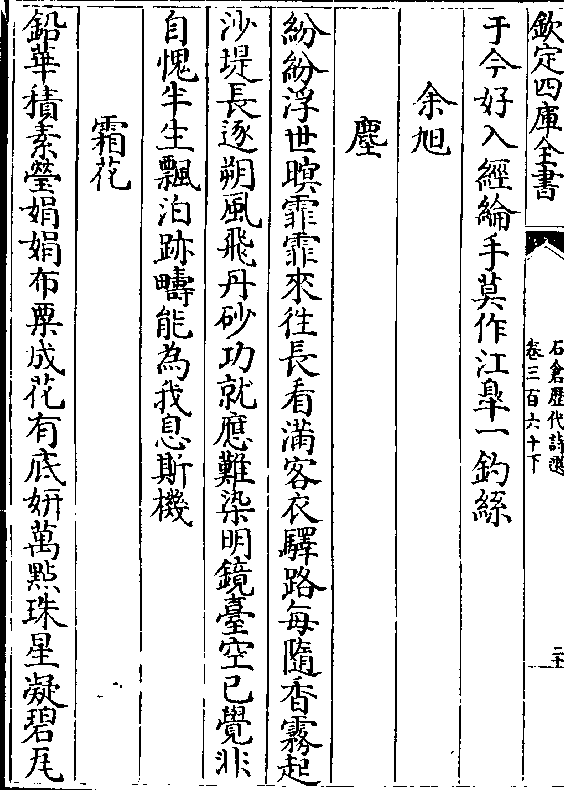 欽定四庫全書
石倉歷代詩選
卷三百六十下
二十
于今好入經綸手莫作江臯一釣絲
余旭
塵
紛紛浮世暝霏霏來往長看滿客衣驛路每隨香霧起
沙堤長逐朔風飛丹砂功就應難染明鏡臺空已覺非
自愧半生飄泊跡疇能為我息斯機
霜花
鉛華積素瑩娟娟布粟成花有底妍萬點珠星凝碧瓦